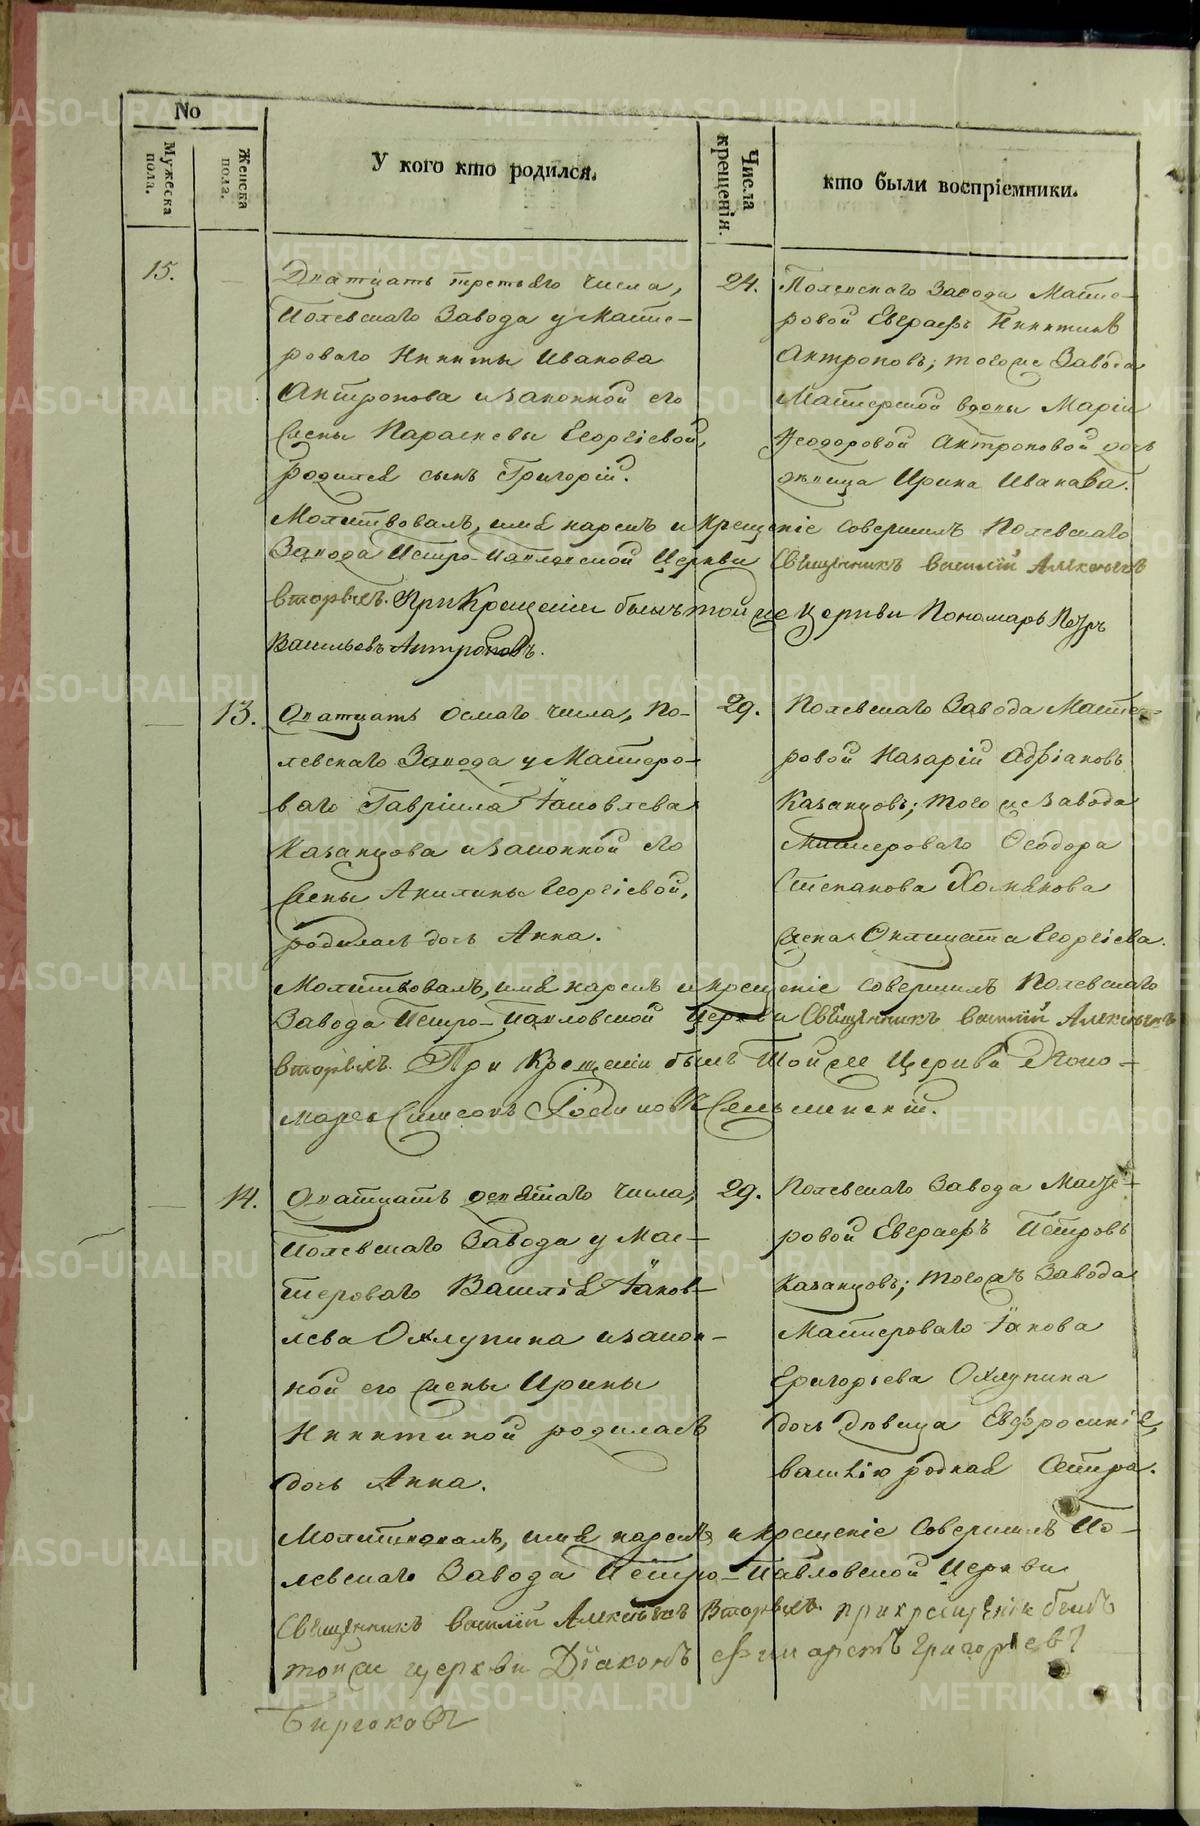 No
Мужеска пола.
Женска пола.
У кого кто родился.
Числа крещенія.
кто были воспріемники.
15.
Дватцать третьяго числа,
Полевскаго Завода у Масте-
роваго Никиты Иванова
Антропова и законной его
жены Параскевы Георгіевой,
родился сынъ Григорій.
24.
Полевскаго Завода Масте-
ровой Евграфъ Никитинъ
Антроповъ; того же Завода
Мастерской вдовы Маріи
Ѳеодоровой Антроповой дочь
дѣвица Ирина Иванова.
Молитвовалъ, имя нарекъ и крещеніе совершилъ Полевскаго
Завода Петро-Павловской Церкви Священникъ Василій Алексѣевъ
Вторыхъ. При Крещеніи былъ той же Церкви Пономарь Петръ
Васильевъ Антроповъ.
13.
Дватцать осмаго числа, По-
левскаго Завода у Мастеро-
ваго Гавріила Іаковлева
Казанцова и законной его
жены Акилины Георгіевой,
родилась дочь Анна.
29.
Полевскаго Завода Масте-
ровой Назарій Адріановъ
Казанцовъ; того же Завода
Мастероваго Ѳеодора
Степанова Хомякова
жена Георгіева.
Молитвовалъ, имя нарекъ и крещеніе совершилъ Полевскаго
Завода Петро-Павловской Церкви Священникъ Василій Алексѣевъ
Вторыхъ. При Крещеніи былъ той же Церкви Поно-
марь Симеонъ
14.
Дватцать девятаго числа,
Полевскаго Завода у Мас-
тероваго Василія Іаков-
лева Охлупина и закон-
ной его жены Ирины
Никитиной родилась
дочь Анна.
29.
Полевскаго Завода Масте-
ровой Евграфъ Петровъ
Казанцовъ; тогожъ Завода
Мастероваго Іакова
Григорьева Охлупина
дочь дѣвица Евфросинія,
Василію родная Сестра.
Молитвовалъ, имя нарекъ и крещеніе совершилъ По-
левскаго Завода Петро-Павловской Церкви
Священникъ Василій Алексѣевъ Вторыхъ. При крещеніи былъ
той же церкви Діаконъ Филаретъ Григорьевъ
Бирюковъ
METRIKI.GASO-URAL.RU